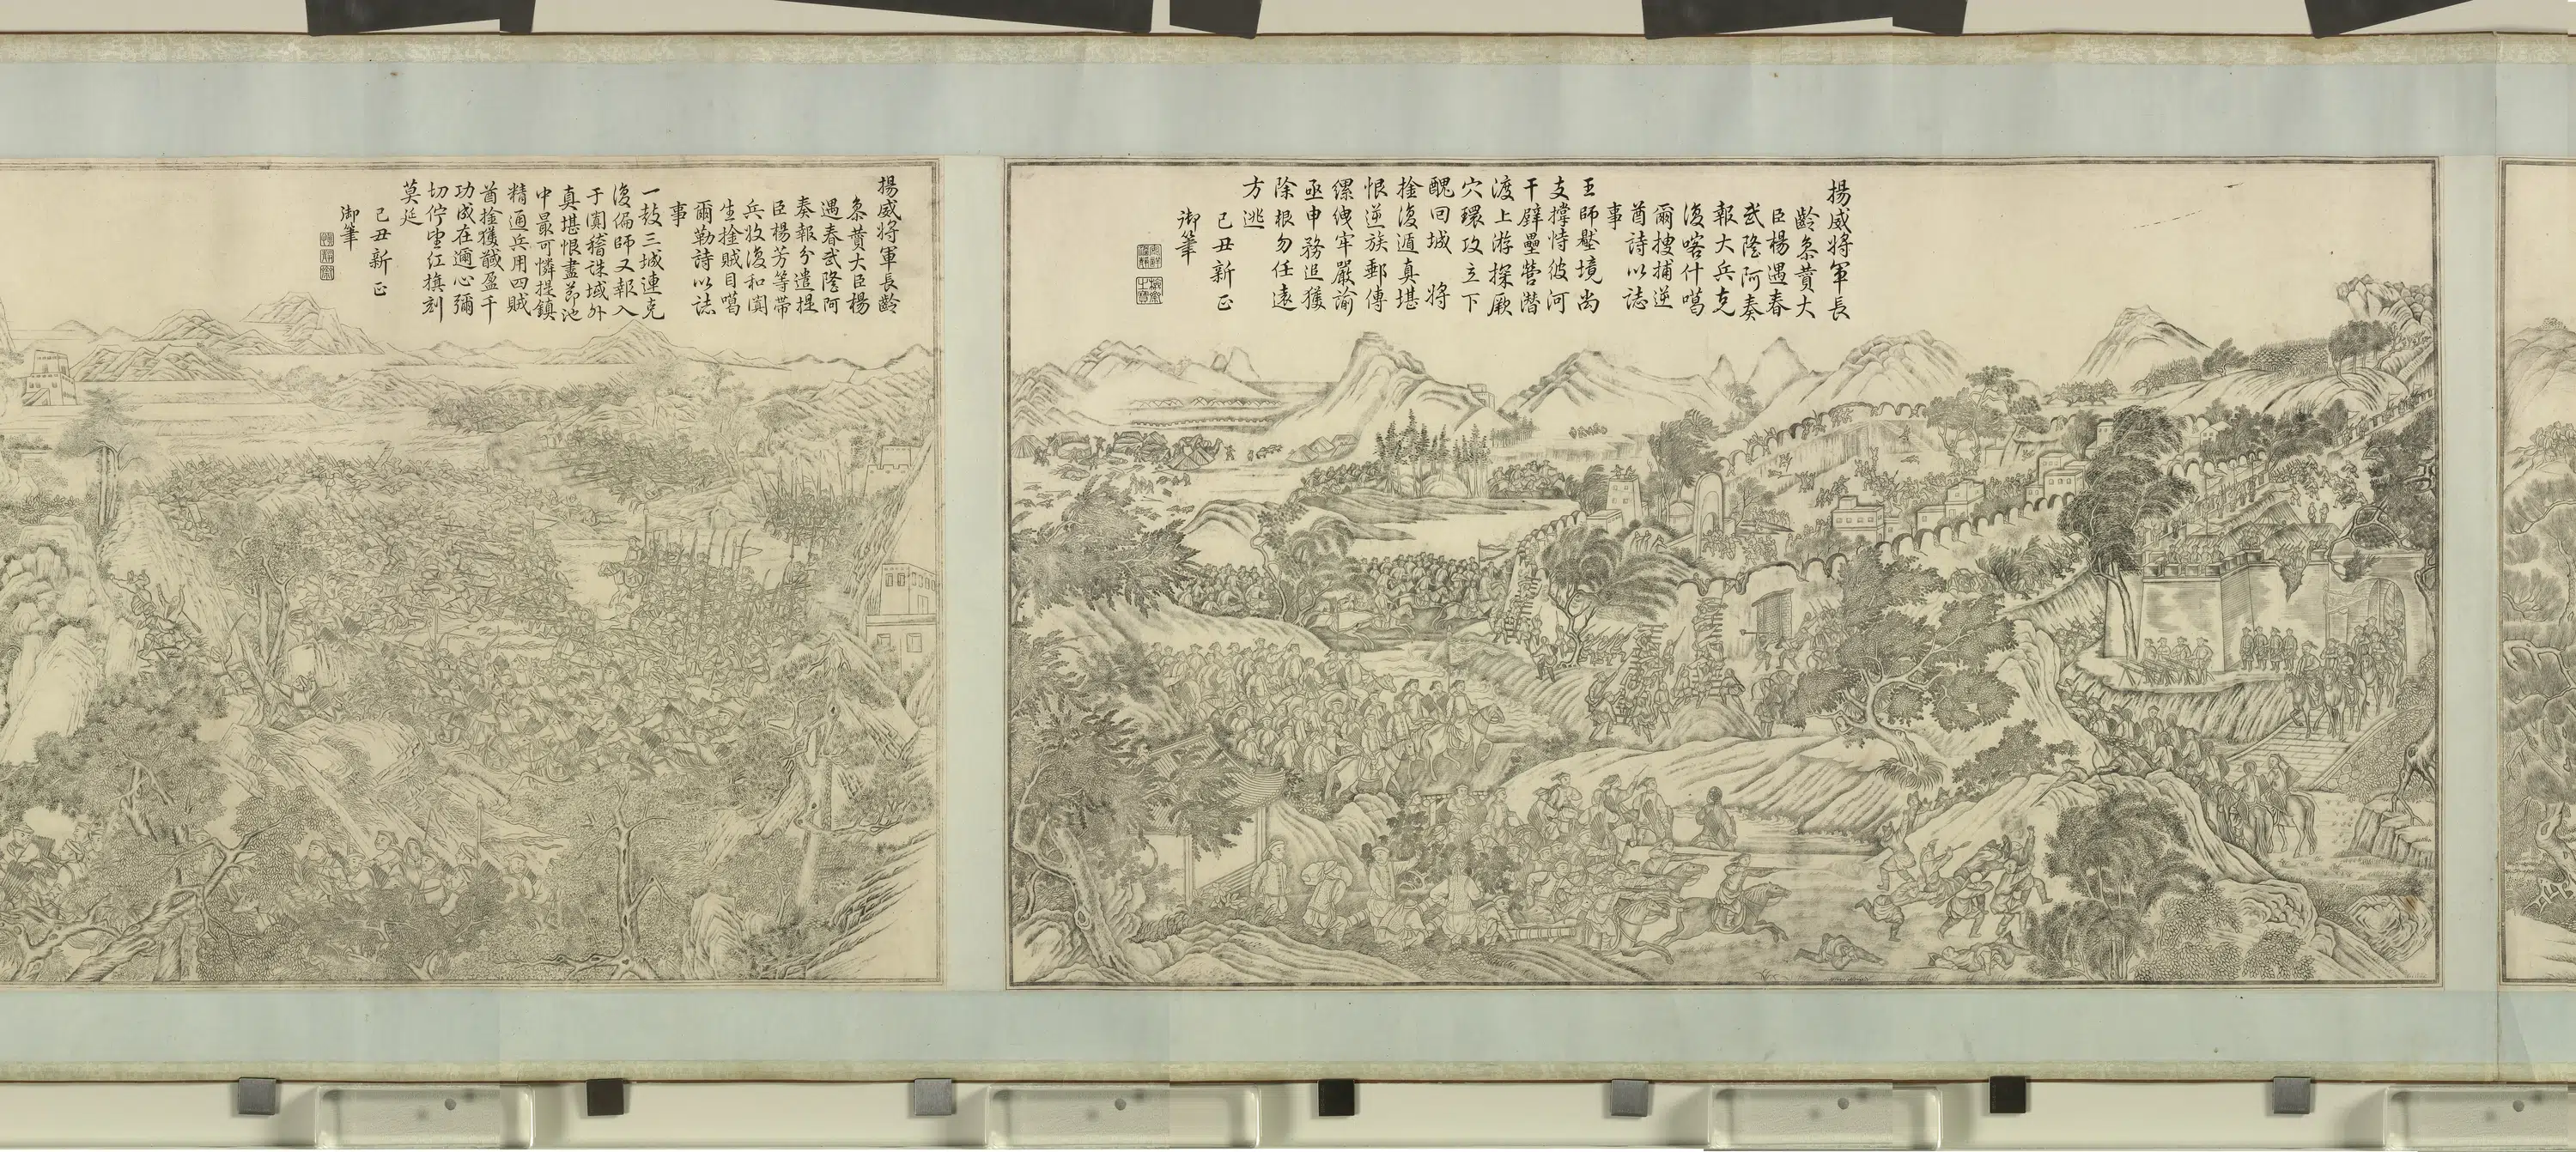 揚威將軍長
齡叅贊大
臣楊遇春
武隆阿奏
報大兵克
復喀什噶
爾搜捕逆
酋詩以誌
事
王師壓境尚
支撐恃彼河
干壁壘營潛
渡上游探厥
穴環攻立下
醜回城將
捦復遁真堪
恨逆族郵傳
縲絏牢嚴諭
亟申務追獲
除根勿任遠
方逃
己丑新正
御筆
揚威將軍長齡
叅贊大臣楊
遇春武隆阿
奏報分遣提
臣楊芳等帶
兵收復和闐
生捦賊目噶
爾勒詩以誌
事
一鼓三城連克
復偏師又報入
于闐稽誅域外
真堪恨盡節池
中最可憐提鎮
精通兵用四賊
酋捦獲馘盈千
功成在邇心彌
切佇望紅旗刻
莫延
己丑新正
御筆